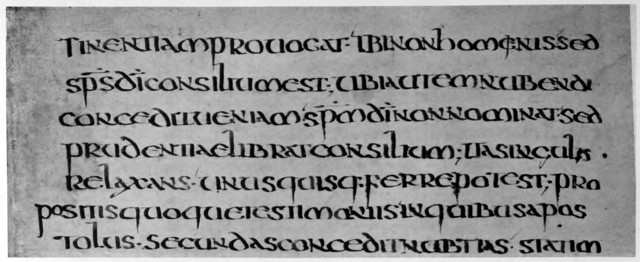 TINENTIAMPROUOCAT·IBINONHOMINISSED
SP̄SDĪCONSILIUMEST;UBIAUTEMNUBENDI
CONCEDITUENIAM·SP̄MDĪNONNOMINAT·SED
PRUDENTIAELIBRATCONSILIUM;ITASINGULIS·
RELAXANS·UNUSQUISQ·FERREPOTEST;PRO
POSITISQUOQUETESTIMONIISINQUIBUSAPOS
TOLUS·SECUNDASCONCEDITNUBTIAS·STATIM